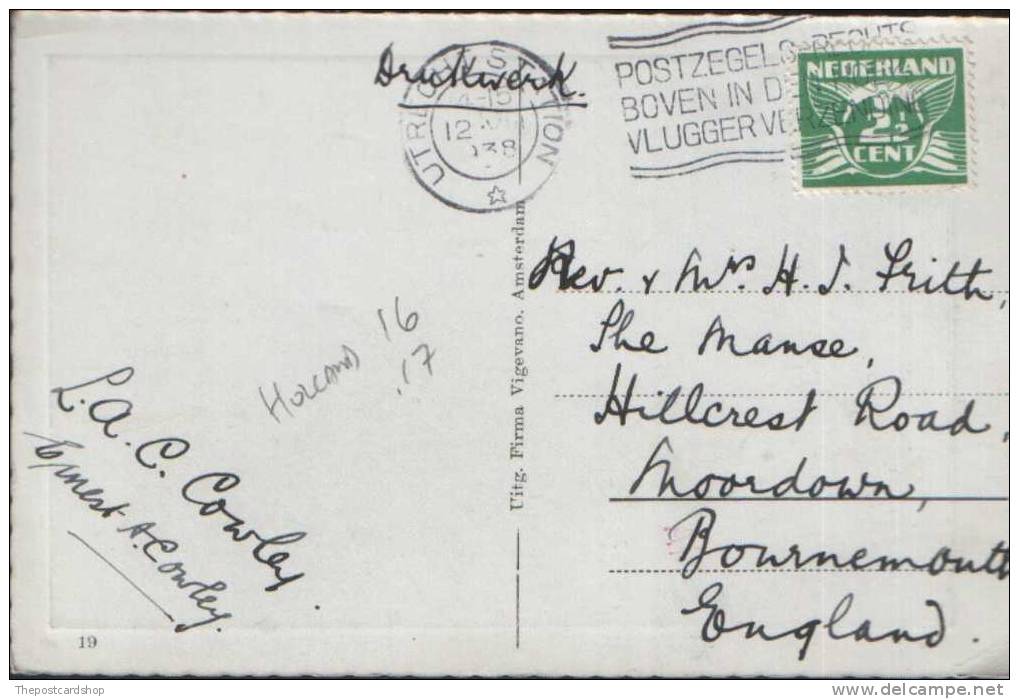 Drukwerk.
UTRECHT STATION
12
POSTZEGELS RECHTS
BOVEN IN DE
VLUGGER VERZENDING
NEDERLAND
2½
CENT
Rev. & Mrs H. J. Frith,
The Manse,
Hillcrest Road,
Moordown,
Bournemouth
England.
HOLLAND 16
.17
L. A. C. Cowley.
Ernest A. Cowley.
Uitg. Firma Vigevano. Amsterdam
19
Thepostcardshop
www.delcampe.net